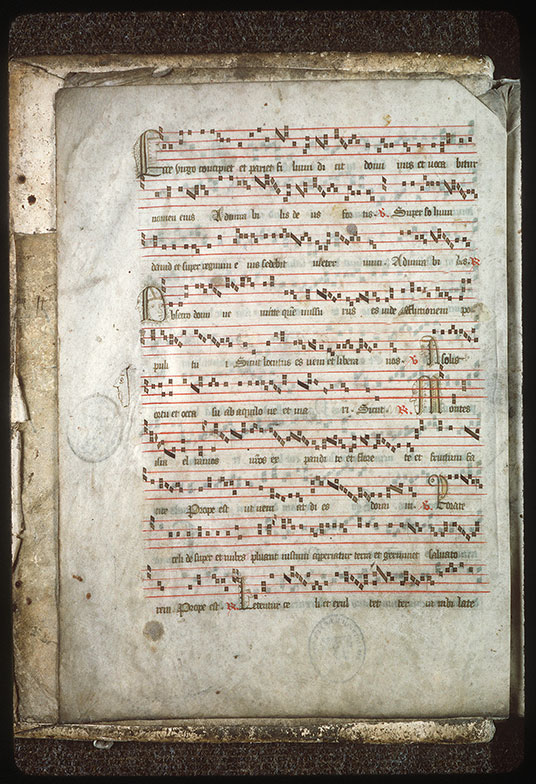 Ecce virgo concipiet et pariet fi lium di cit domi nus et voca bitur
nomen eius Admira bi lis de us for tis. V. Super solium
david et super regnum e ius sedebit in eter num. Admira bi lis. R
Obsecro domi ne mitte quem missu rus es vide afflictionem po
puli tu i Sicut locutus es veni et libera nos. V A solis
ortu et occa su ab aquilo ne et ma ri. Sicut. R. Montes
isra el ramos vestros ex pandi te et flore te et fructum fa
cite Prope est ut veni at di es domi ni. V. Rorate
celi de super et nubes pluant iustum aperiatur terra et germinet salvato
rem. Prope est. R Letentur ce li et exul tet ter ra iubi late